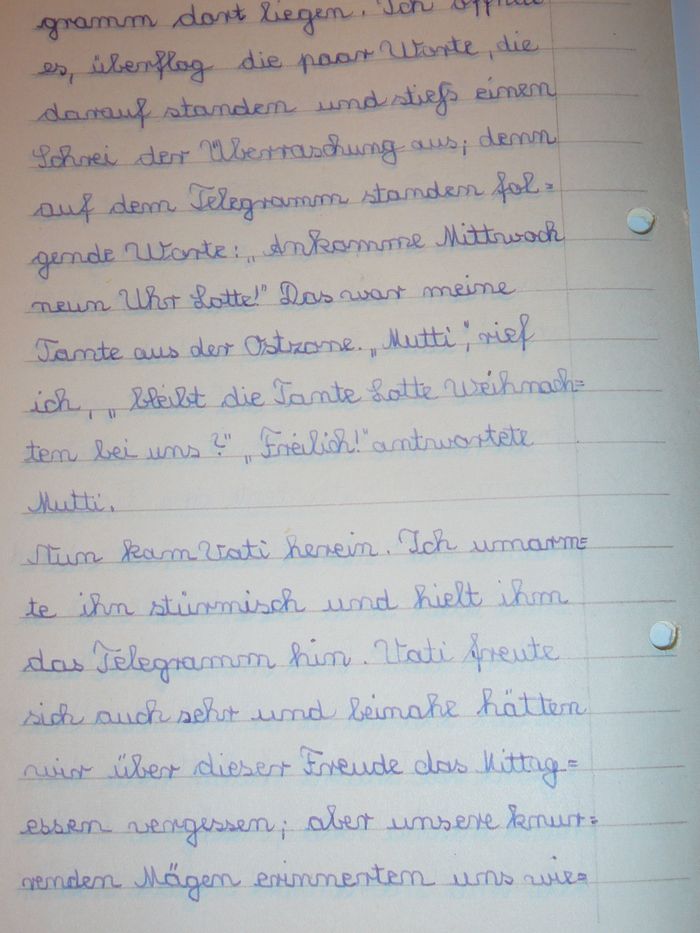 gramm dort liegen. Ich öffnete
es, überflog die paar Worte, die
darauf standen und stieß einen
Schrei der Überraschung aus; denn
auf dem Telegramm standen fol=
gende Worte: „Ankomme Mittwoch
neun Uhr Lotte!" Das war meine
Tante aus der Ostzone. „Mutti", rief
ich, „bleibt die Tante Lotte Weihnach=
ten bei uns?" „Freilich!" antwortete
Mutti.
Nun kam Vati herein. Ich umarm=
te ihn stürmisch und hielt ihm
das Telegramm hin. Vati freute
sich auch sehr und beinahe hätten
wir über dieser Freude das Mittag=
essen vergessen; aber unsere knur=
renden Mägen erinnerten uns wie=